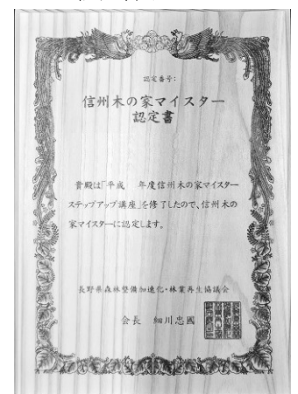 認定番号:
信州木の家マイスター
認定書
貴殿は「平成 年度信州木の家マイスター
ステップアップ講座」を修了したので、信州木の
家マイスターに認定します。
長野県森林整備加速化・林業再生協議会
会長 細川忠國